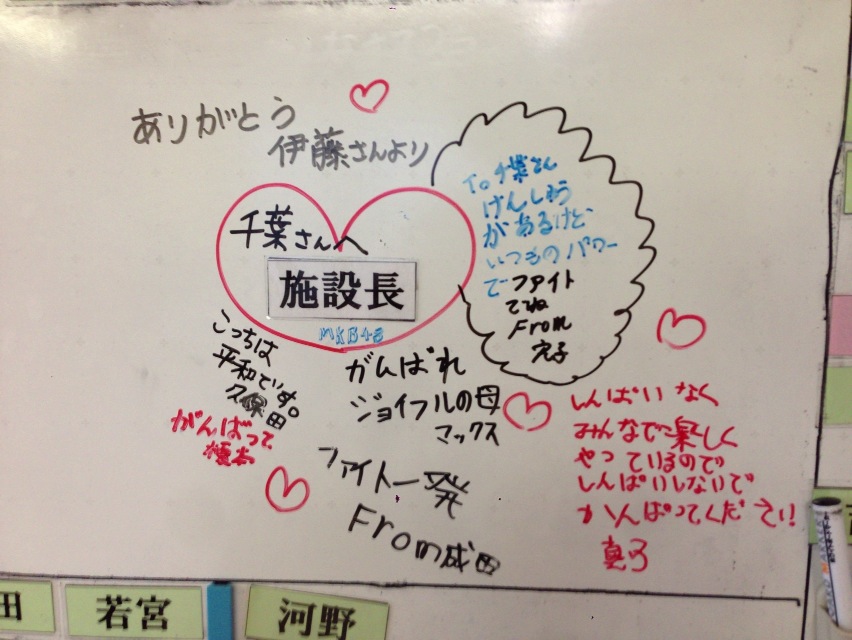 ありがとう
伊藤さんより
千葉さんへ
施設長
MKB48
To千葉さん
けんしゅう
があるけど
いつものパワー
でファイト
でね
From
こっちは
平和です。
久保田
がんばって
がんばれ
ジョイフルの母
マックス
ファイト一発
From成田
しんぱいなく
みんなで楽しく
やっているので
しんぱいしないで
がんばってください!
田
若宮
河野